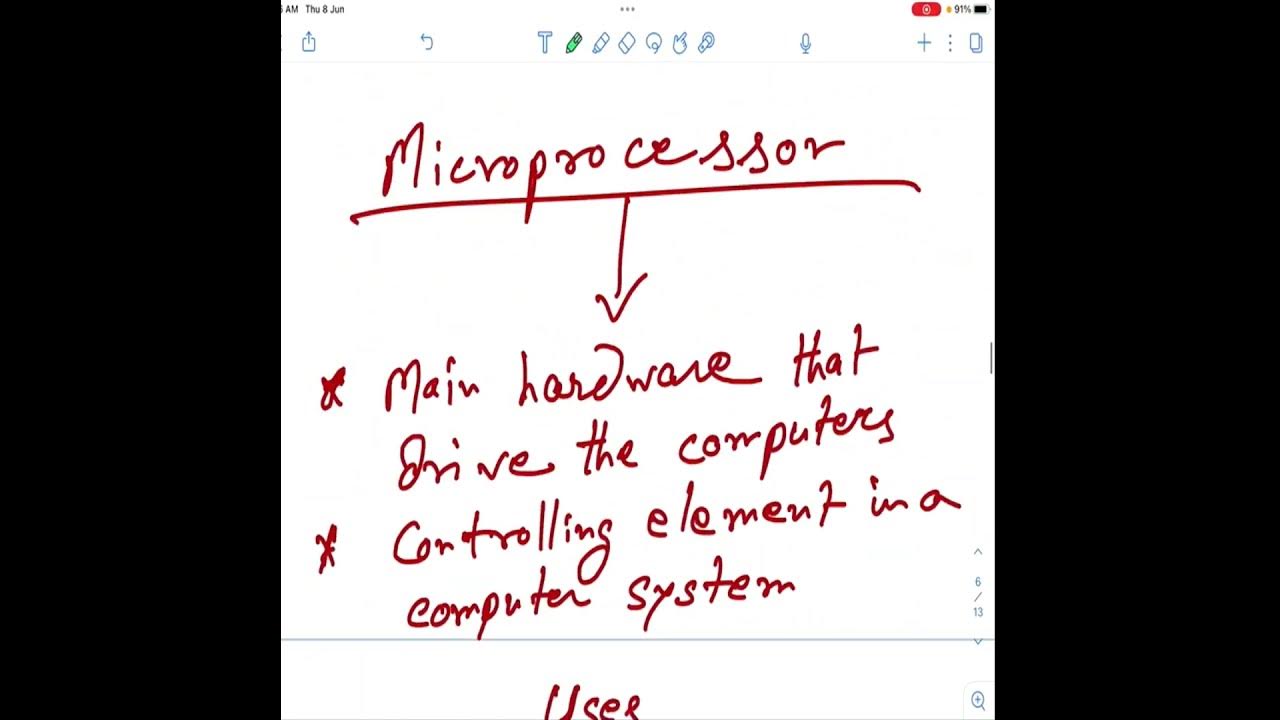 AM Thu 8 Jun
91%
Microprocessor
* Main hardware that
drive the computers
* Controlling element in a
computer system
6
/
13
Uses